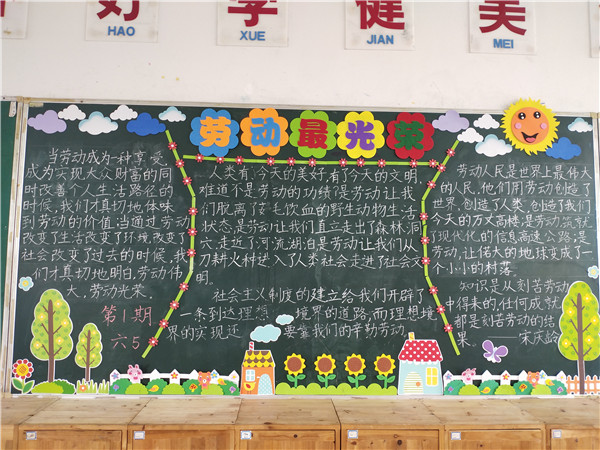 好 学 健 美
HAO XUE JIAN MEI
劳动最光荣
当劳动成为一种享受,
成为实现大众财富的同
时改善个人生活路径的
时候,我们才真切地体味
到劳动的价值,当通过劳动
改变了生活改变了环境,改变了
社会改变了过去的时候,我
们才真切地明白,劳动伟
大,劳动光荣。
第1期
六5
人类有了今天的美好,有了今天的文明
难道不是劳动的功绩?是劳动让我
们脱离了茹毛饮血的野生动物生活
状态,是劳动让我们直立走出了森林,洞
穴,走近了河流,湖泊是劳动让我们从
刀耕火村进入了人类社会走进了社会文
明。
社会主义制度的建立给我们开辟了
一条到达理想境界的道路,而理想境
界的实现还要靠我们的辛勤劳动。
劳动人民是世界上最伟大
的人民,他们用劳动创造了
世界,创造了人类,创造了我们
今天的万丈高楼,是劳动,筑就
了现代化的信息高速公路,是
劳动,让偌大的地球变成了一
个小小的村落。
知识是从刻苦劳动
中得来的,任何成就
都是刻苦劳动的结
果。——宋庆龄